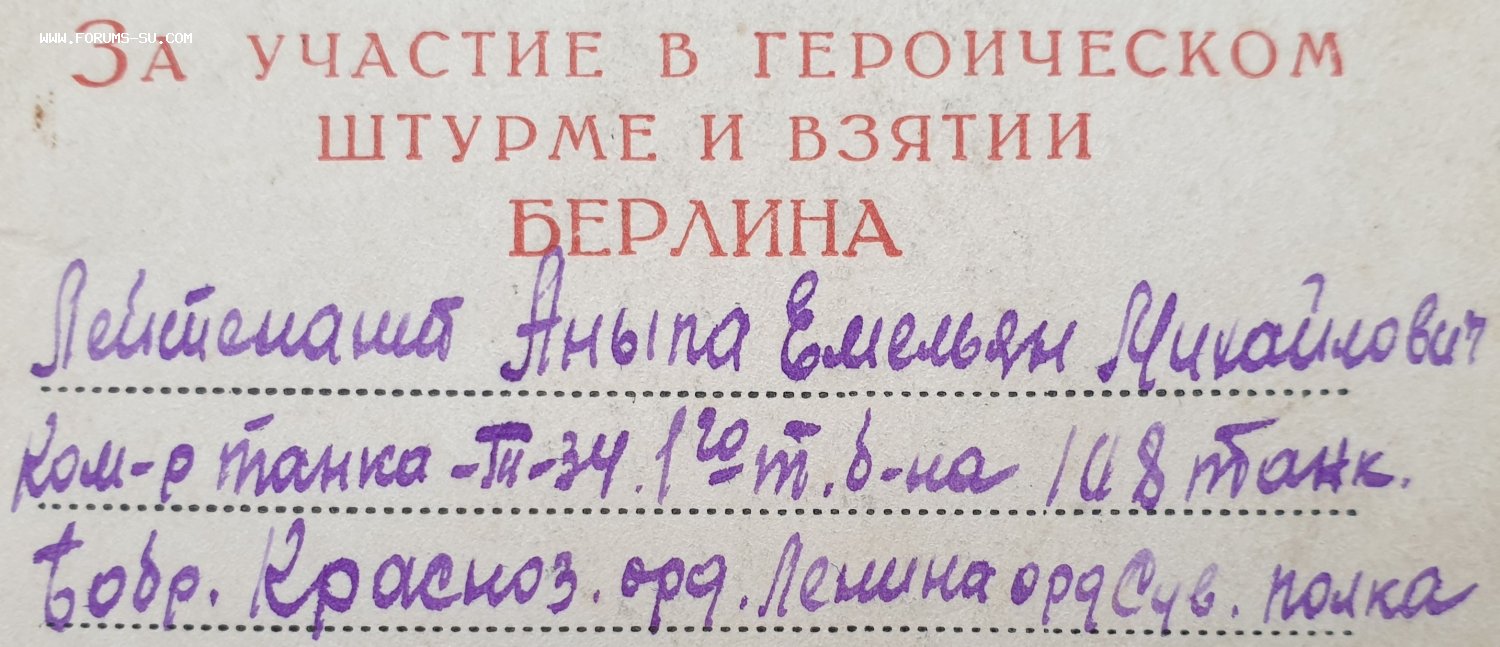 www.forums-su.com
За участие в героическом
штурме и взятии
Берлина
Лейтенант Аныпа Емельян Михайлович
Ком-р танка -Т-34. 1го т. б-на 108 танк.
Бобр. Красноз. орд. Ленина орд Сув. полка